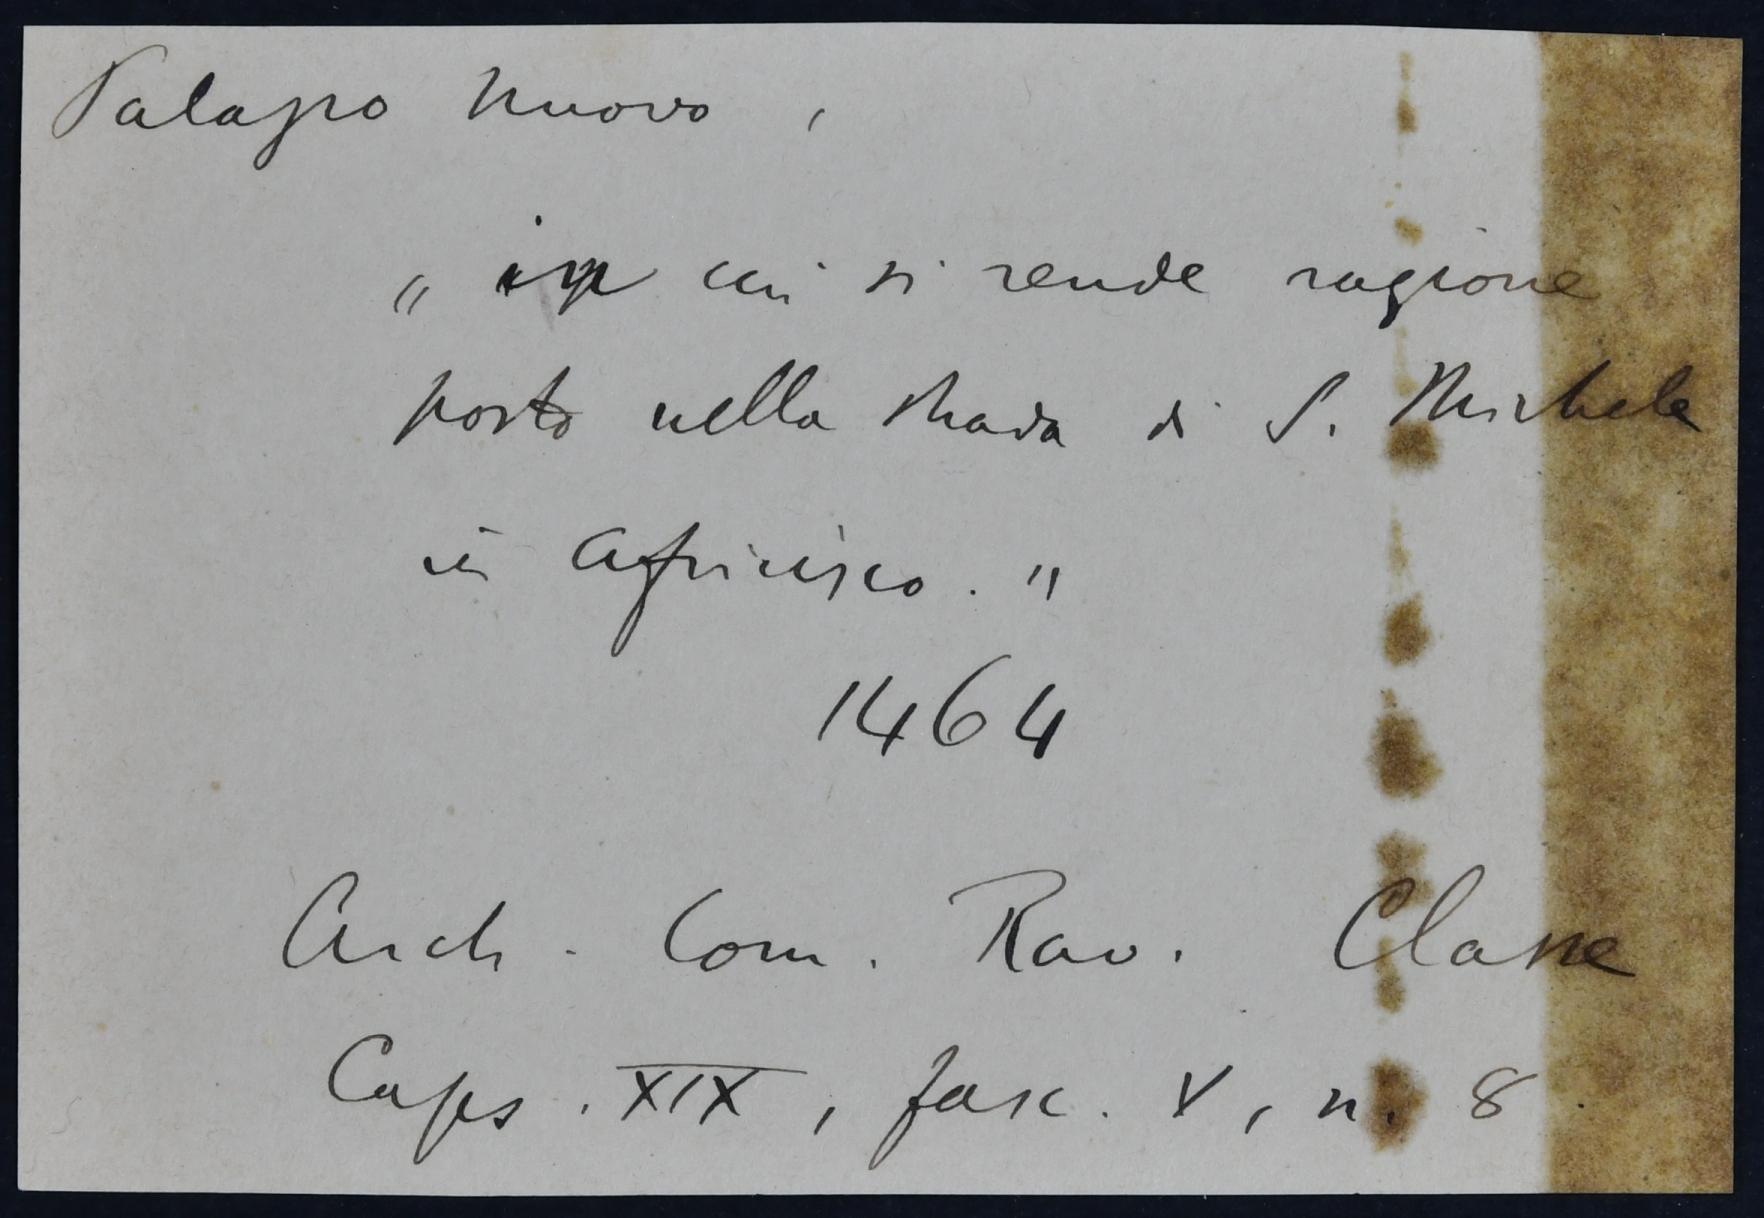 Palazzo Nuovo,
"in cui si rende ragione
posto nella strada di S. Michele
in Africisco."
1464
Arch. Com. Rav. Classe
Caps. XIX, fasc. V, n. 8.